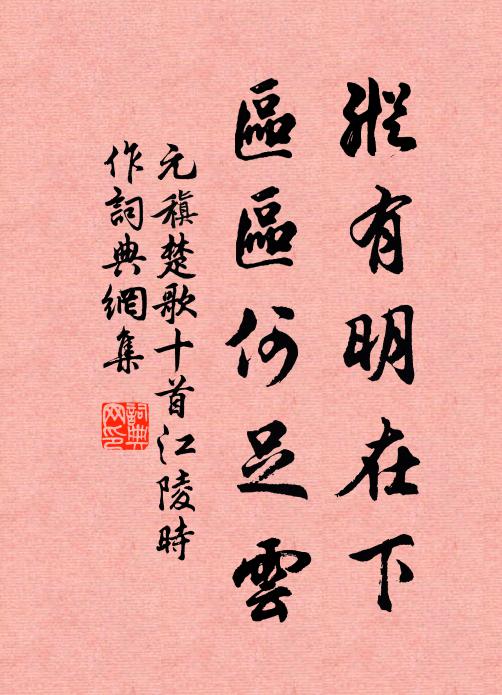 縱有明在下
區區何足雲
元稹楚歌十首江陵時
作詞典網集
詞典网印